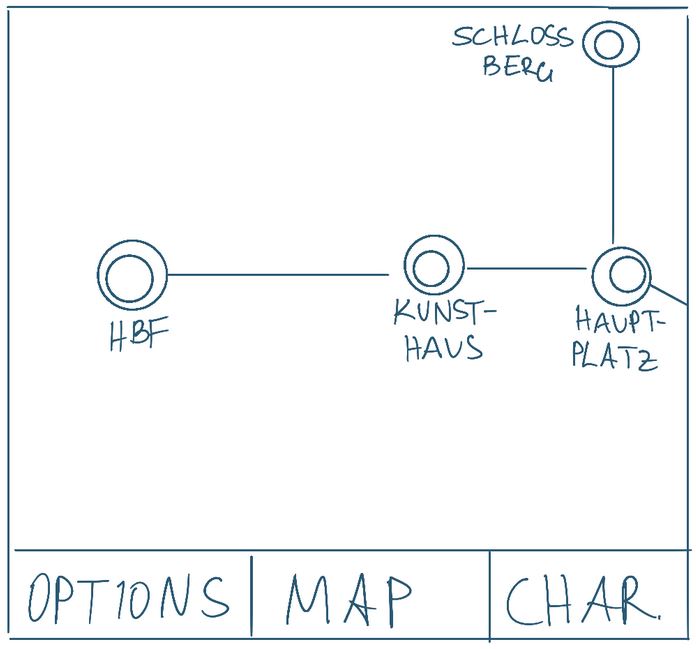 SCHLOSS
BERG
HBF
KUNST-
HAUS
HAUPT-
PLATZ
OPTIONS
MAP
CHAR.